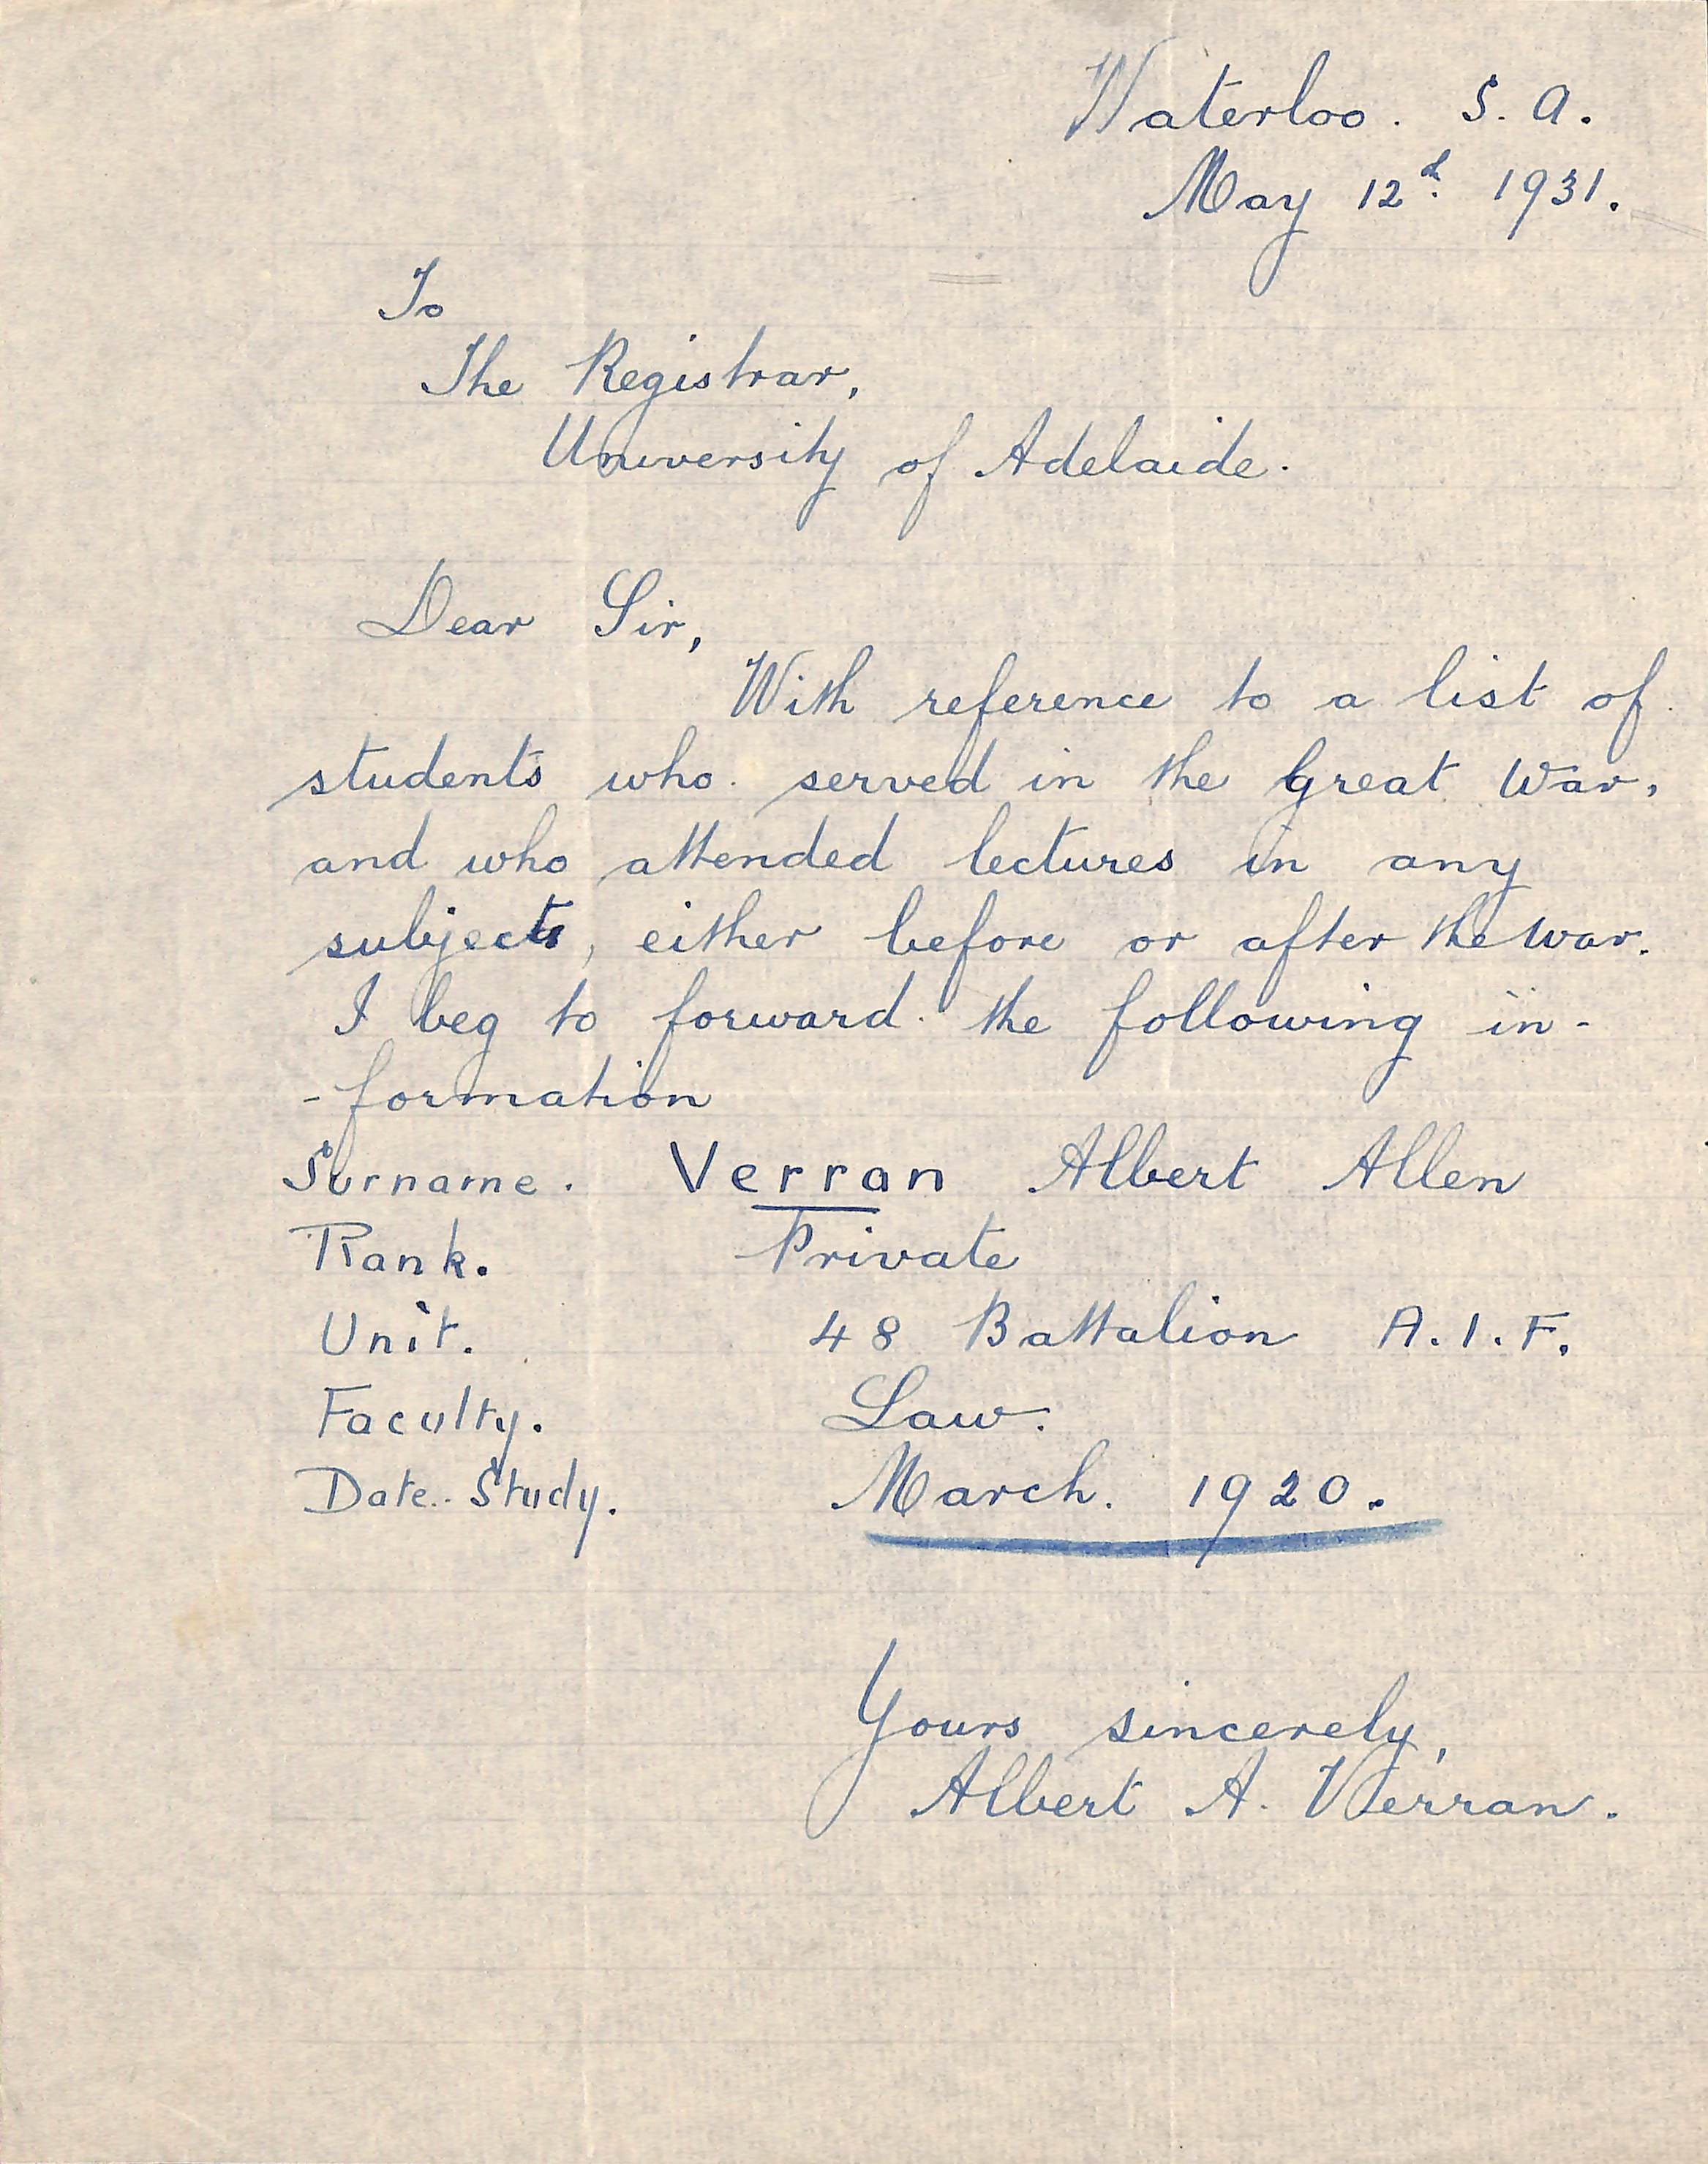 Waterloo. S. A.
May 12th. 1931.
To
The Registrar,
University of Adelaide.
Dear Sir,
With reference to a list of
students who served in the Great War,
and who attended lectures in any
subjects, either before or after the war.
I beg to forward the following in-
-formation
Surname. Verran Albert Allen
Rank. Private
Unit. 48 Battalion A.I.F.
Faculty. Law.
Date. Study. March. 1920.
Yours sincerely,
Albert A. Verran.